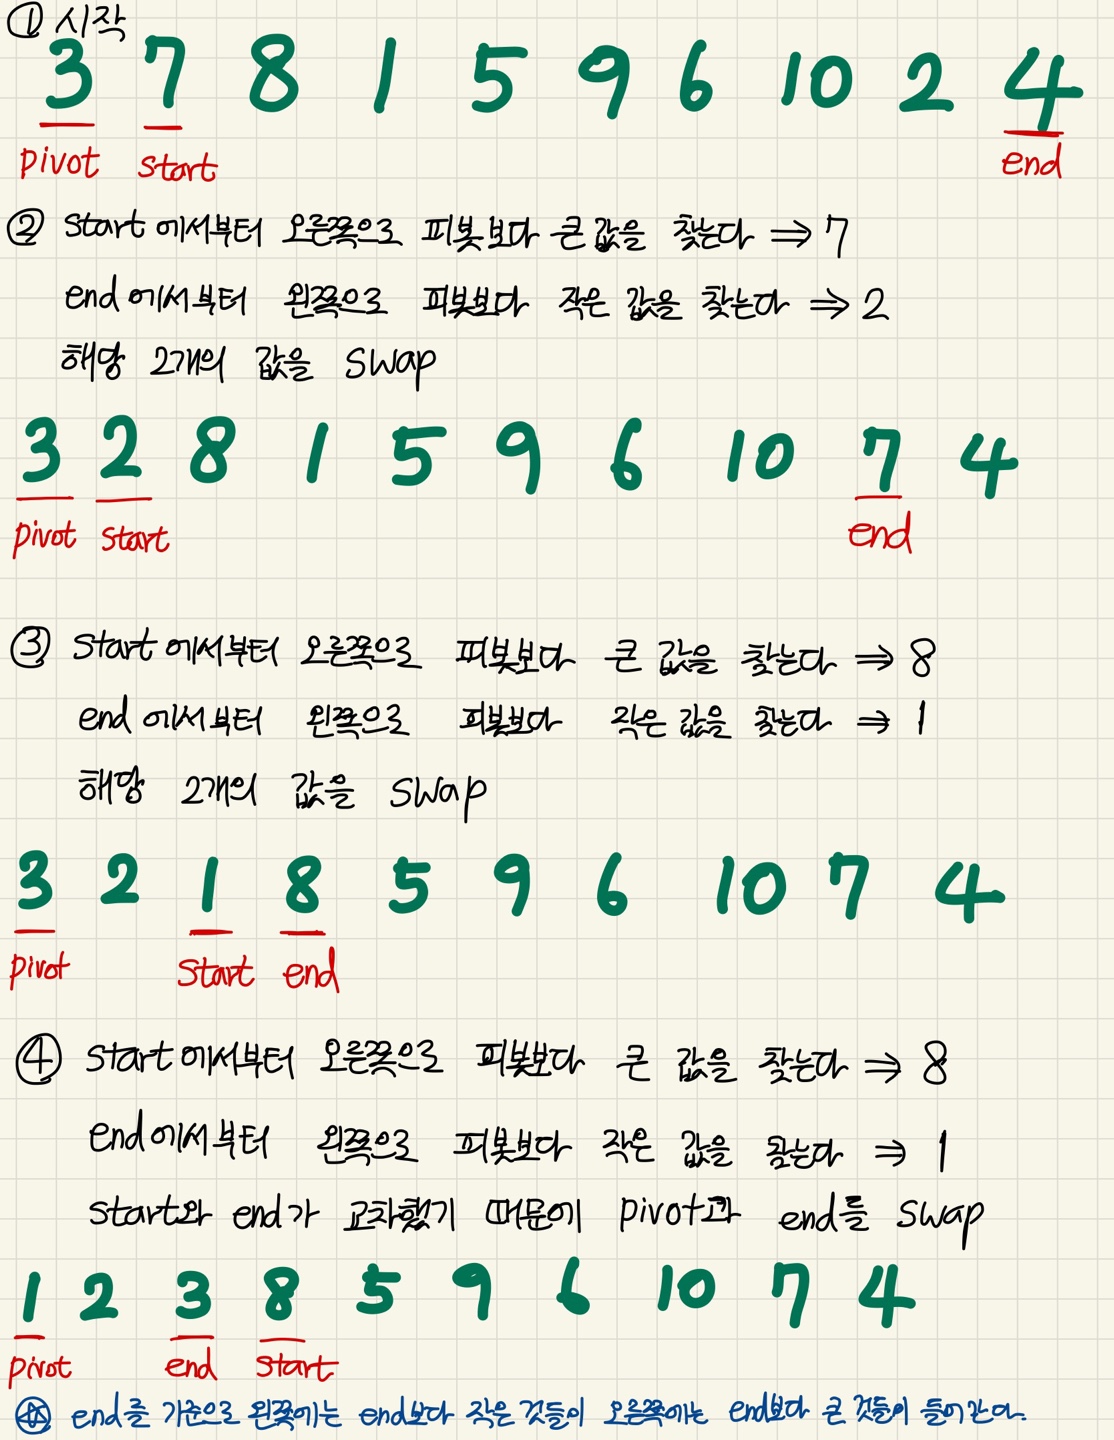 ① 시작
3 7 8 1 5 9 6 10 2 4
pivot start end
② start에서부터 오른쪽으로 피봇보다 큰 값을 찾는다 ⇒ 7
end에서부터 왼쪽으로 피봇보다 작은 값을 찾는다 ⇒ 2
해당 2개의 값을 swap
3 2 8 1 5 9 6 10 7 4
pivot start end
③ start에서부터 오른쪽으로 피봇보다 큰 값을 찾는다 ⇒ 8
end에서부터 왼쪽으로 피봇보다 작은 값을 찾는다 ⇒ 1
해당 2개의 값을 swap
3 2 1 8 5 9 6 10 7 4
pivot start end
④ start에서부터 오른쪽으로 피봇보다 큰 값을 찾는다 ⇒ 8
end에서부터 왼쪽으로 피봇보다 작은 값을 찾는다 ⇒ 1
start와 end가 교차했기 때문에 pivot과 end를 swap
1 2 3 8 5 9 6 10 7 4
pivot end start
end를 기준으로 왼쪽에는 end보다 작은 것들이 오른쪽에는 end보다 큰 것들이 들어간다.